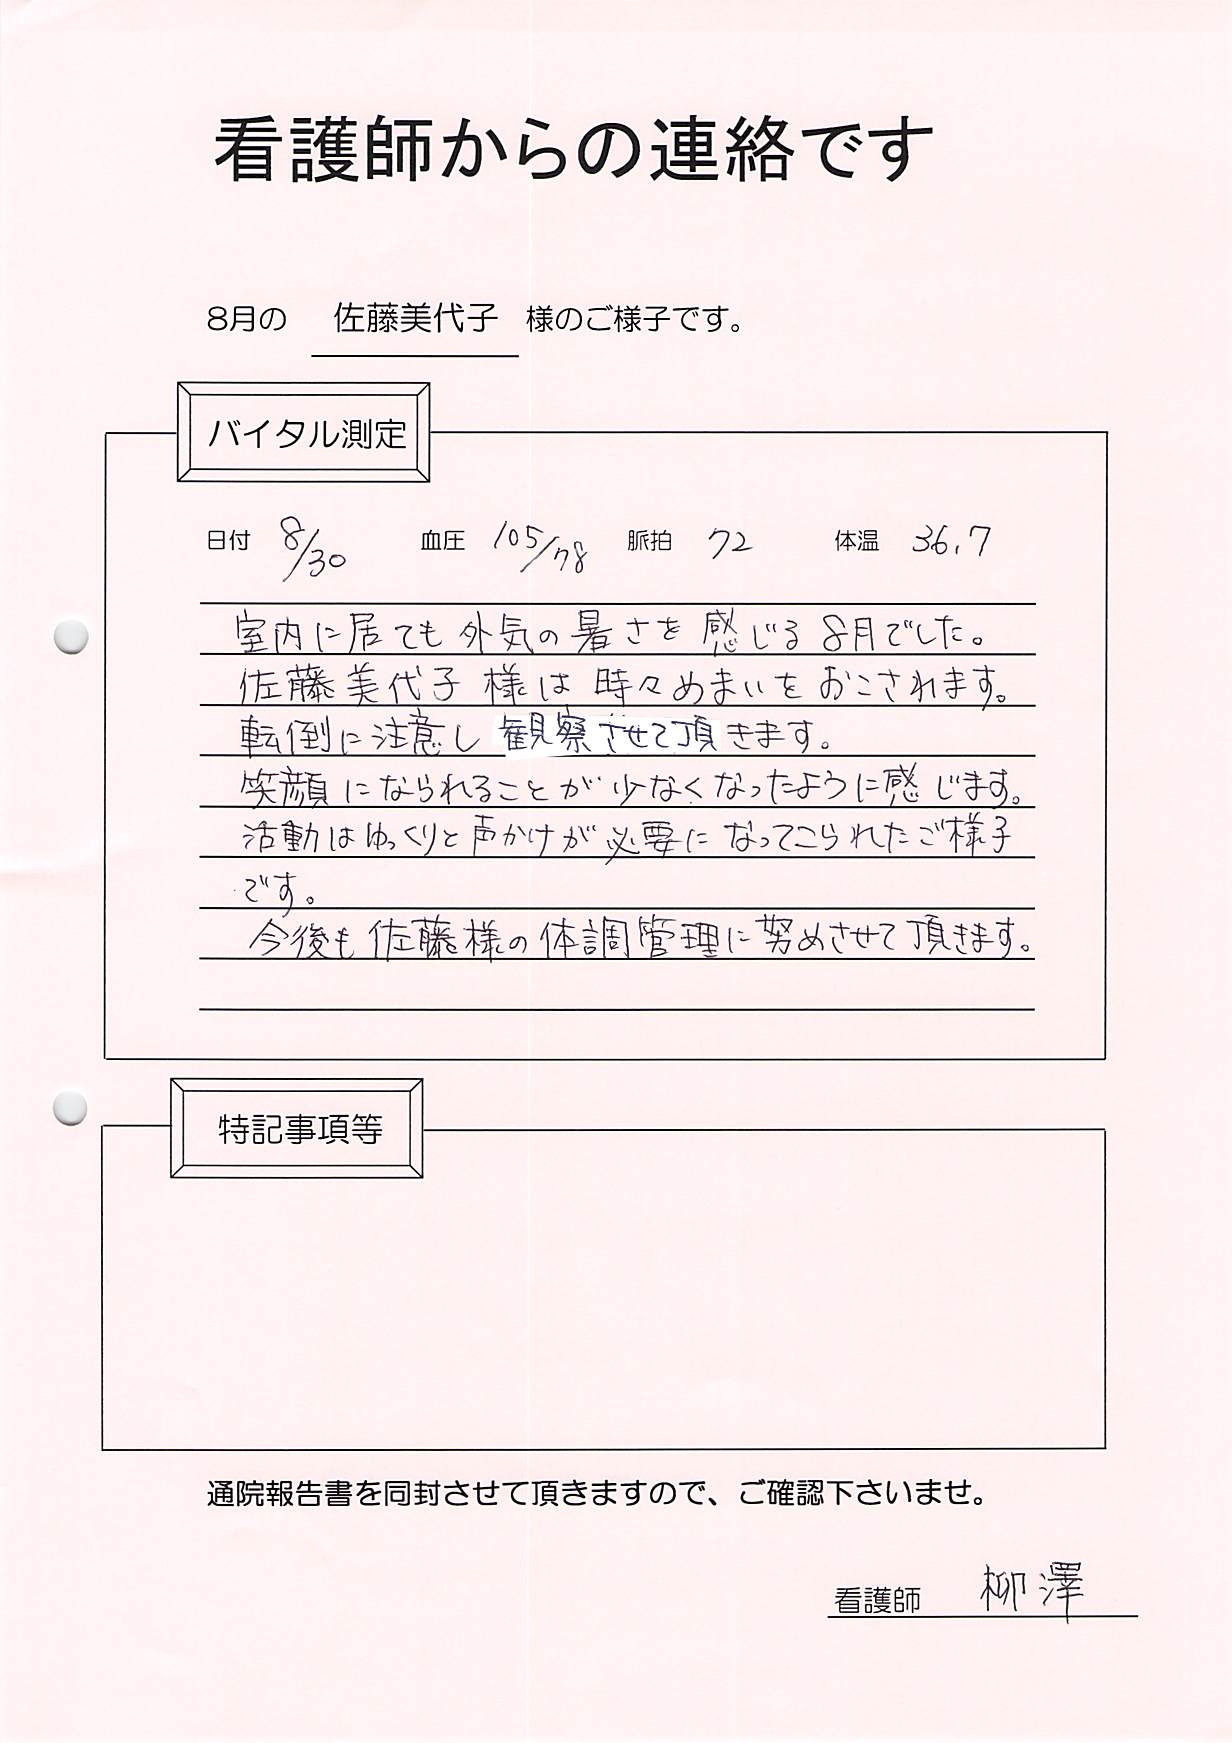 看護師からの連絡です
8月の 佐藤美代子 様のご様子です。
バイタル測定
日付 8/30 血圧 105/78 脈拍 72 体温 36.7
室内に居ても外気の暑さを感じる8月でした。
佐藤美代子様は時々めまいをおこされます。
転倒に注意し観察させて頂きます。
笑顔になられることが少なくなったように感じます。
活動はゆっくりと声かけが必要になってこられたご様子
です。
今後も佐藤様の体調管理に努めさせて頂きます。
特記事項等
通院報告書を同封させて頂きますので、ご確認下さいませ。
看護師 柳澤